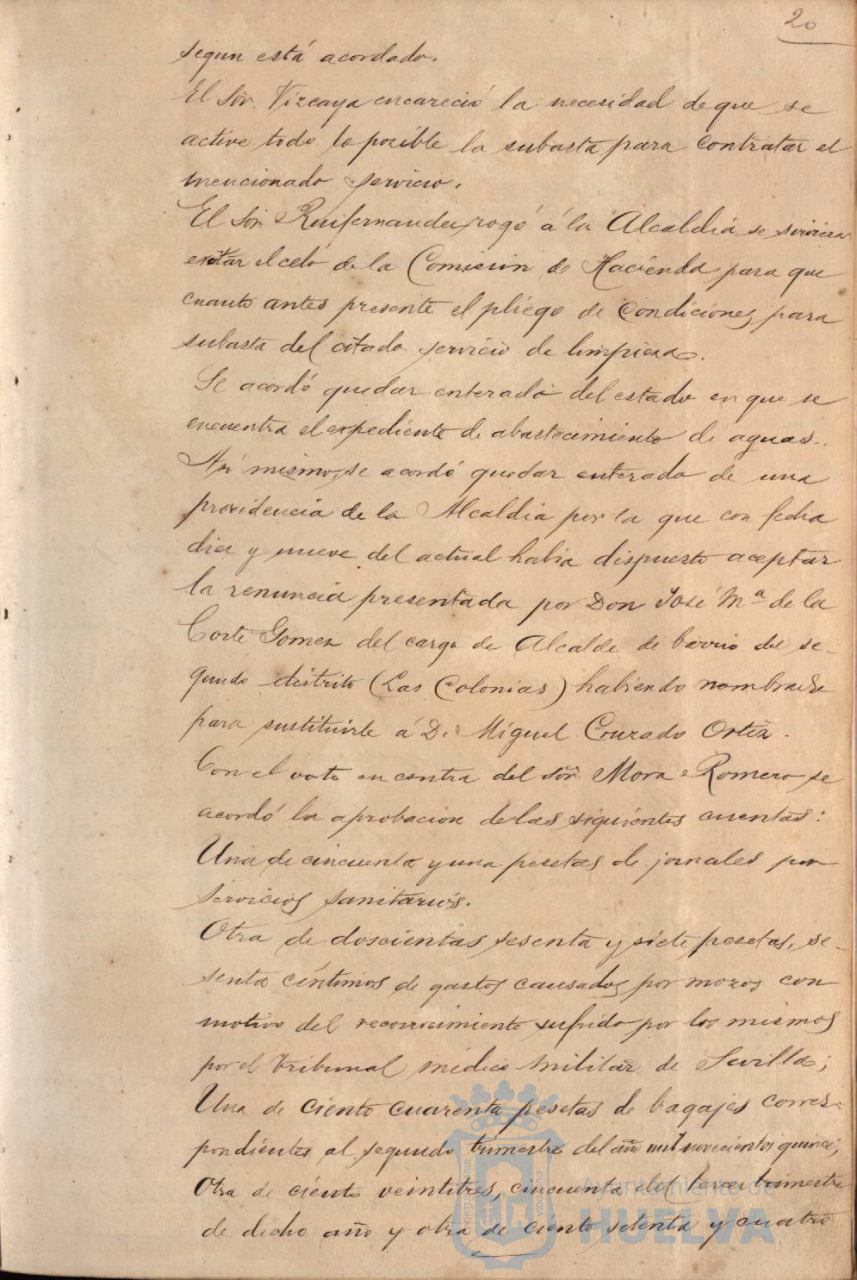 20
segun está acordado.
El Sor. Vizcaya encareció la necesidad de que se
active todo lo posible la subasta para contratar el
mencionado servicio.
El Sor. Ruifernandez rogó á la Alcaldia se sirviera
exitar el celo de la Comision de Hacienda para que
cuanto antes presente el pliego de condiciones para
subasta del citado servicio de limpieza.
Se acordó quedar enterado del estado en que se
encuentra el expediente de abastecimiento de aguas.
Asi mismo, se acordó quedar enterado de una
providencia de la Alcaldia por la que con fecha
diez y nueve del actual habia dispuesto aceptar
la renuncia presentada por Don José Mª de la
Corte Gomez del cargo de Alcalde de barrio del se-
gundo distrito (Las Colonias) habiendo nombrado
para sustituirle á D. Miguel Cruzado Ortiz.
Con el voto en contra del Sor. Mora Romero se
acordó la aprobacion de las siguientes cuentas:
Una de cincuenta y una pesetas de jornales por
servicios sanitarios.
Otra de doscientas sesenta y siete pesetas, se-
senta céntimos de gastos causados por mozos con
motivo del reconocimiento sufrido por los mismos
por el tribunal médico militar de Sevilla;
Una de ciento cuarenta pesetas de bagajes corres-
pondientes al segundo trimestre del año mil novecientos quince;
Otra de ciento veintitres, cincuenta del tercer trimestre
de dicho año y otra de ciento setenta y cuatro
Ayuntamiento de
HUELVA